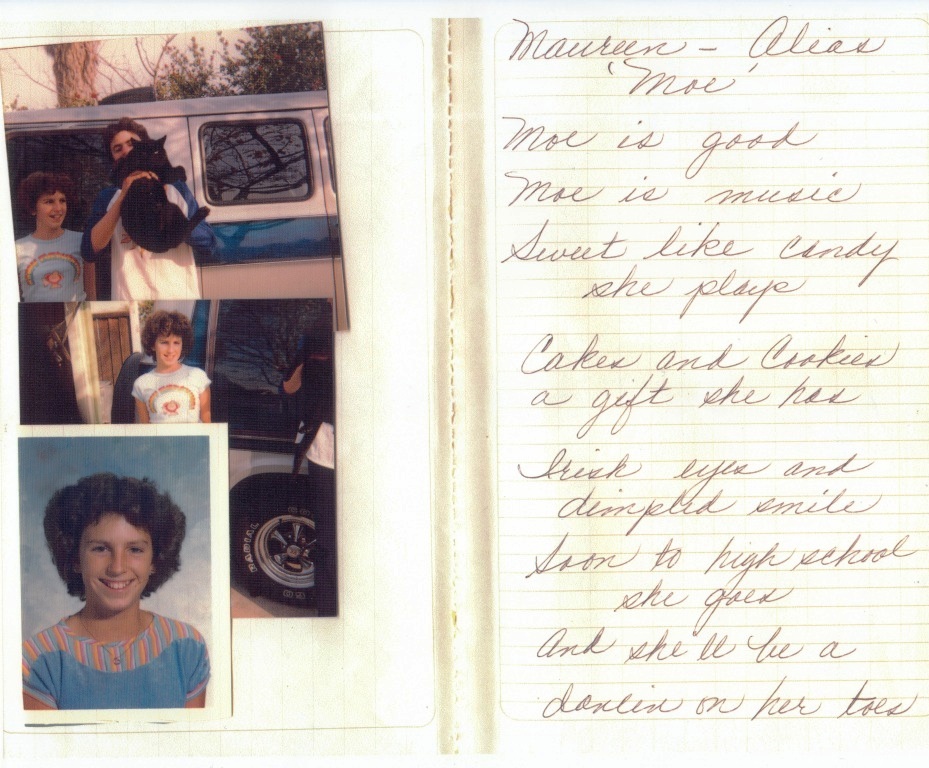 Maureen - Alias
'Moe'
Moe is good
Moe is music
Sweet like candy
she plays
Cakes and Cookies
a gift she has
Irish eyes and
dimpled smile
Soon to high school
she goes
And she'll be a
dancin on her toes
RADIAL